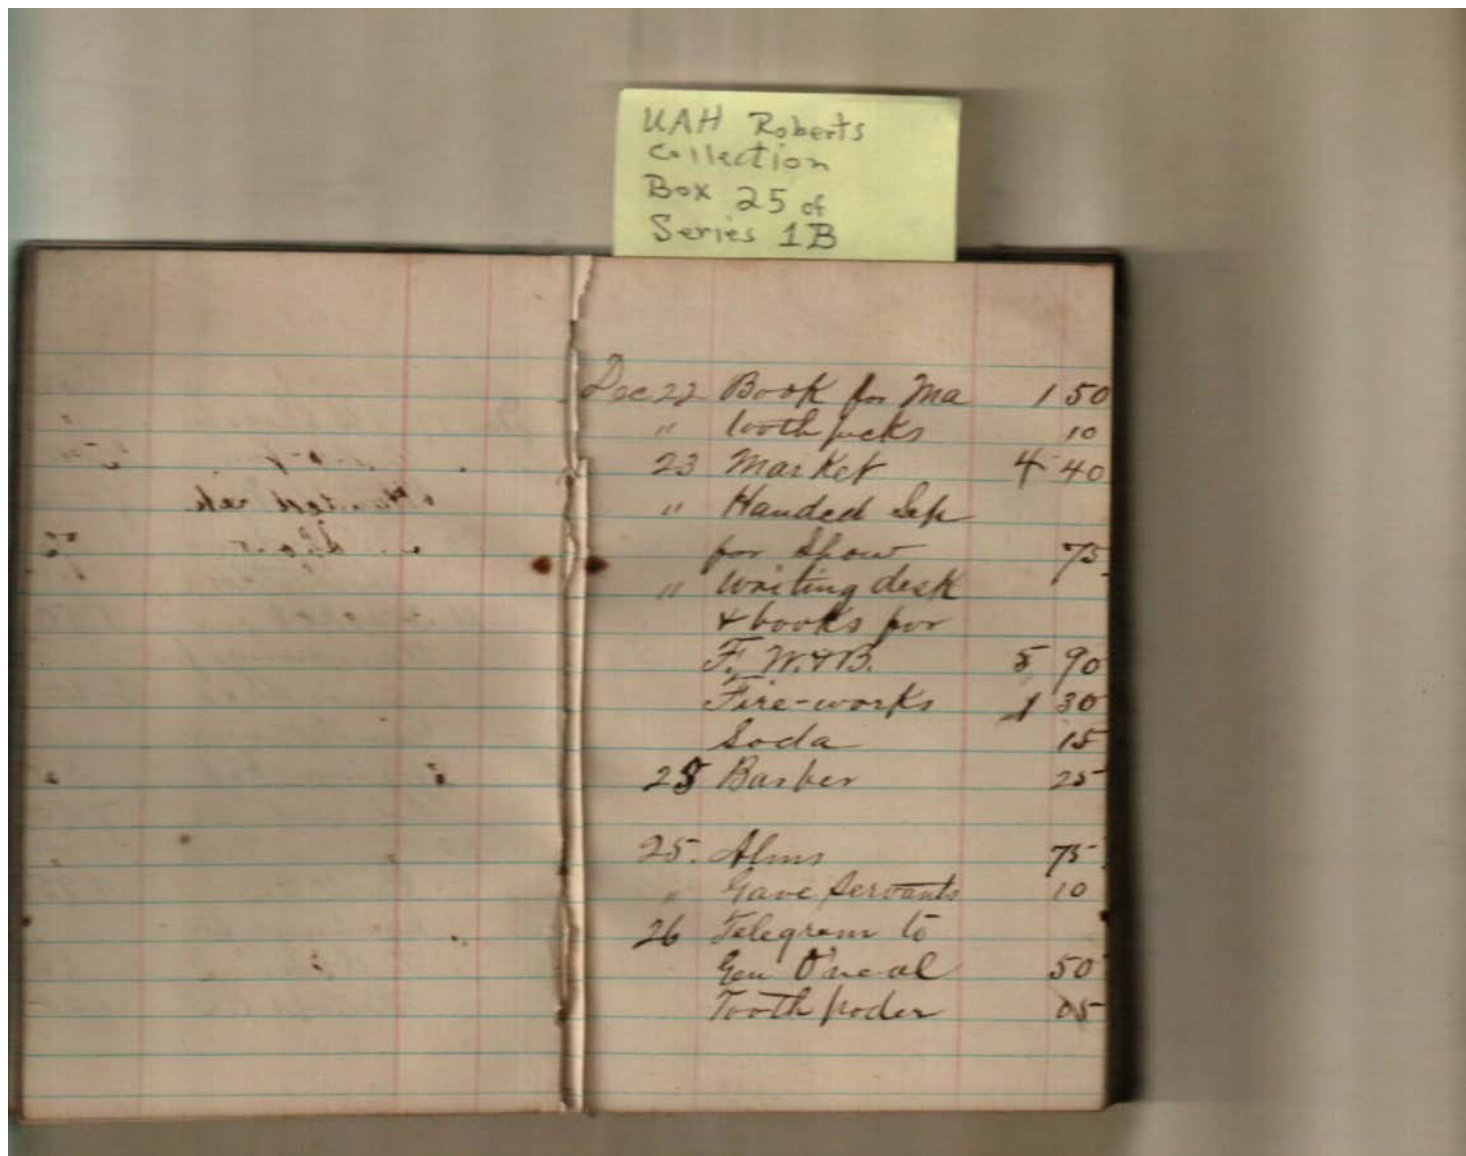 UAH Roberts
Collection
Box 25 of
Series 1B
Dec 22 Book for Ma 1 50
" tooth picks 10
23 Market 4 40
" Handed Sep
for Show 75
" writing desk
& books for
F. W. & B. 5 90
Fire-works 1 30
Soda 15
25 Barber 25
25. Alms 75
" Gave Servants 10
26 Telegram to
Gen O'neal 50
Tooth poder 05